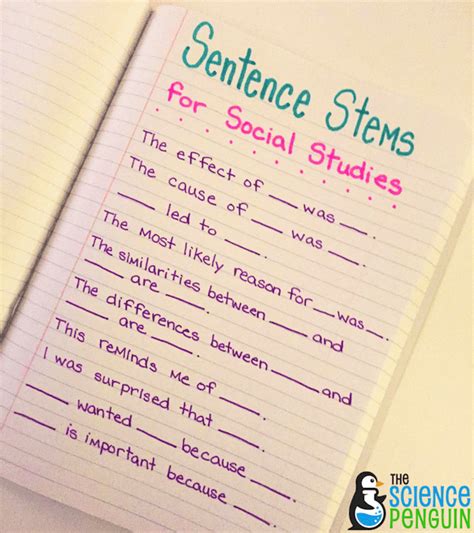 Sentence Stems
for Social Studies
The effect of ___ was ___.
The cause of ___ was ___.
___ led to ___.
The most likely reason for ___ was ___.
The similarities between ___ and
___ are ___.
The differences between ___ and
___ are ___.
This reminds me of ___.
I was surprised that ___.
___ wanted ___ because ___.
___ is important because ___.
THE
SCIENCE
PENGUIN